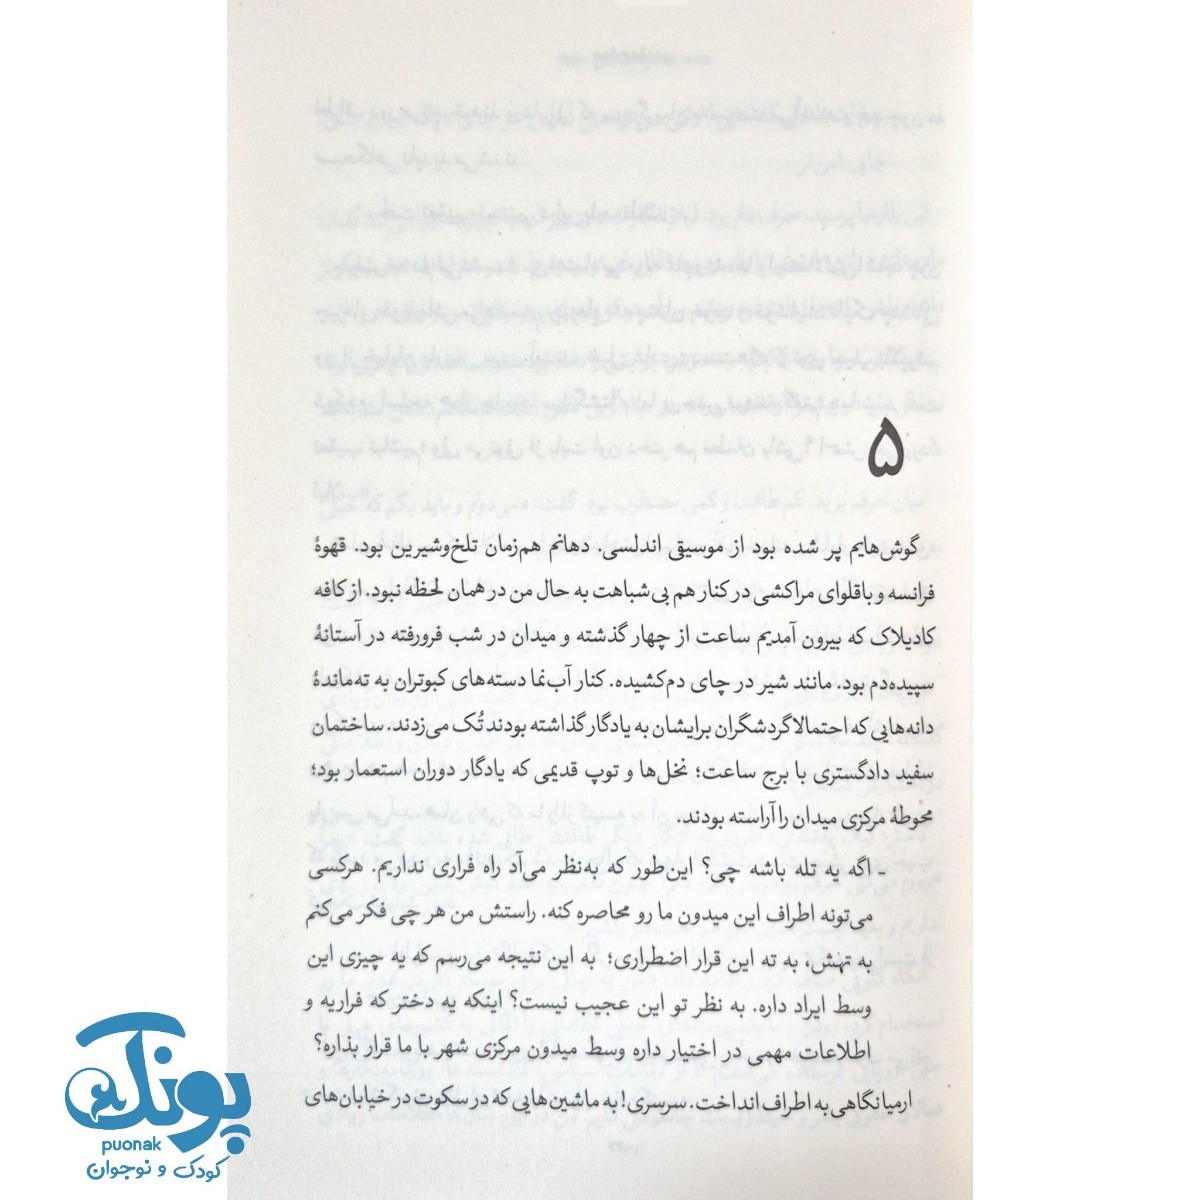 ۵
گوش‌هایم پر شده بود از موسیقی اندلسی. دهانم هم‌زمان تلخ‌وشیرین بود. قهوهٔ
فرانسه و باقلوای مراکشی در کنار هم بی‌شباهت به حال من در همان لحظه نبود. از کافه
کادیلاک که بیرون آمدیم ساعت از چهار گذشته و میدان در شب فرورفته در آستانهٔ
سپیده‌دم بود. مانند شیر در چای دم‌کشیده. کنار آب‌نما دسته‌های کبوتران به ته‌ماندهٔ
دانه‌هایی که احتمالا گردشگران برایشان به یادگار گذاشته بودند تُک می‌زدند. ساختمان
سفید دادگستری با برج ساعت؛ نخل‌ها و توپ قدیمی که یادگار دوران استعمار بود؛
محوطهٔ مرکزی میدان را آراسته بودند.
- اگه یه تله باشه چی؟ این‌طور که به‌نظر می‌آد راه فراری نداریم. هرکسی
می‌تونه اطراف این میدون ما رو محاصره کنه. راستش من هر چی فکر می‌کنم
به تهش، به ته این قرار اضطراری؛ به این نتیجه می‌رسم که یه چیزی این
وسط ایراد داره. به نظر تو این عجیب نیست؟ اینکه یه دختر که فراریه و
اطلاعات مهمی در اختیار داره وسط میدون مرکزی شهر با ما قرار بذاره؟
ارمیا نگاهی به اطراف انداخت. سرسری! به ماشین‌هایی که در سکوت در خیابان‌های
پونک
puonak
کودک و نوجوان